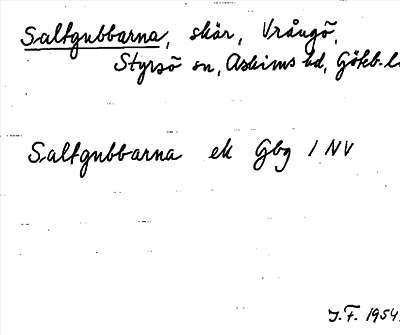 Saltgubbarna, skär, Vrångö,
Styrsö sn, Askims hd, Göteb.l.
Saltgubbarna ek Gbg 1 NV
J.F. 1954.